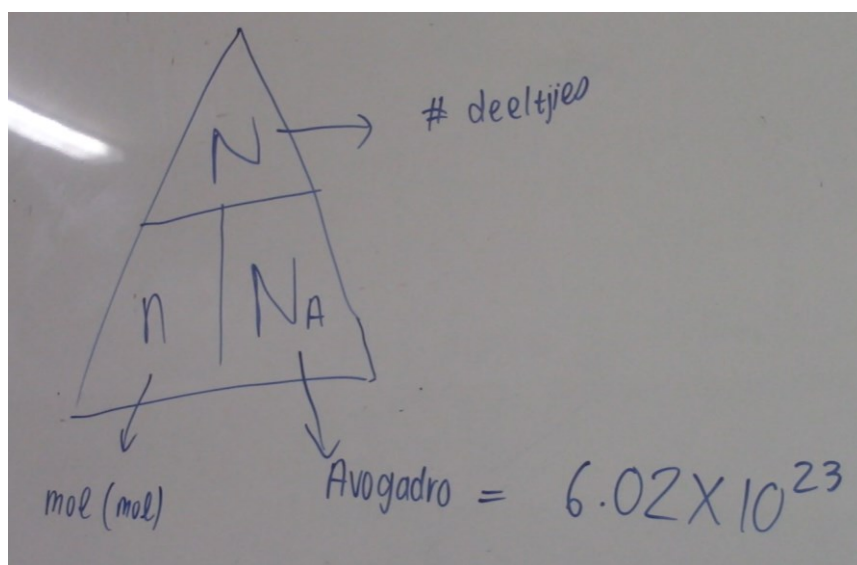 N
# deeltjies
n
N_A
mol (mol)
Avogadro = 6.02 X 10²³